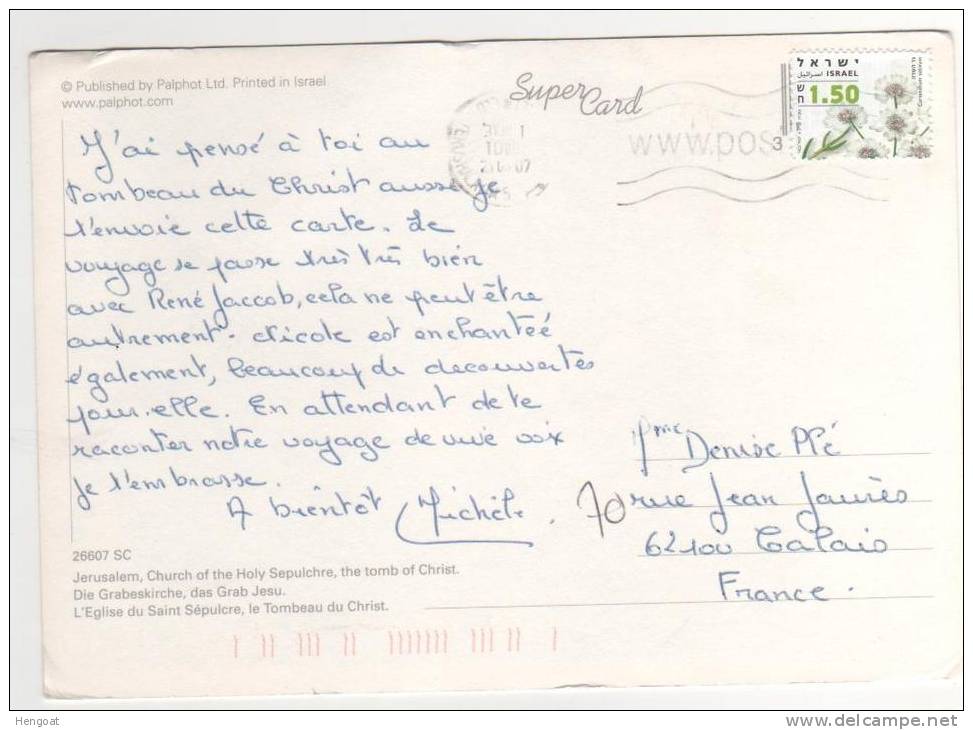 © Published by Palphot Ltd. Printed in Israel
www.palphot.com
Super Card
ישראל
اسرائيل ISRAEL
1.50
www.pos
3
J'ai pensé à toi au
tombeau du Christ aussi je
t'envoie cette carte. Le
voyage se passe très très bien
avec René Jaccob, cela ne peut être
autrement. Nicole est enchantée
également, beaucoup de decouvertes
pour elle. En attendant de te
raconter notre voyage de vive voix
je t'embrasse.
A bientôt Michèle.
Mme Denise Plé
70 rue Jean Jaurès
62100 Calais
France.
26607 SC
Jerusalem, Church of the Holy Sepulchre, the tomb of Christ.
Die Grabeskirche, das Grab Jesu.
L'Eglise du Saint Sépulcre, le Tombeau du Christ.
Hengoat
www.delcampe.net